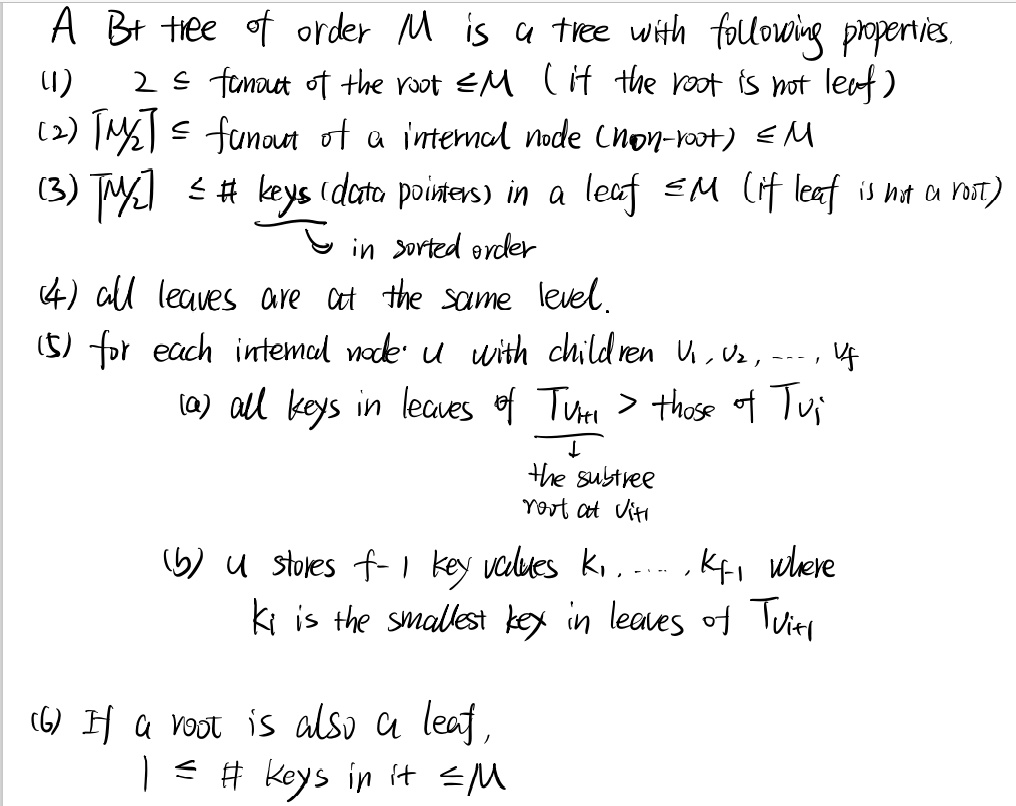 A B+ tree of order M is a tree with following properties.
(1) 2 ≤ fanout of the root ≤ M (if the root is not leaf)
(2) ⌈M/2⌉ ≤ fanout of a internal node (non-root) ≤ M
(3) ⌈M/2⌉ ≤ # keys (data pointers) in a leaf ≤ M (if leaf is not a root)
↘ in sorted order
(4) all leaves are at the same level.
(5) for each internal node u with children v₁, v₂, ----, vf
(a) all keys in leaves of Tvᵢ₊₁ > those of Tvᵢ
↓
the subtree
root at vᵢ₊₁
(b) u stores f-1 key values k₁, ...., kf-1 where
kᵢ is the smallest key in leaves of Tvᵢ₊₁
(6) If a root is also a leaf,
1 ≤ # keys in it ≤ M